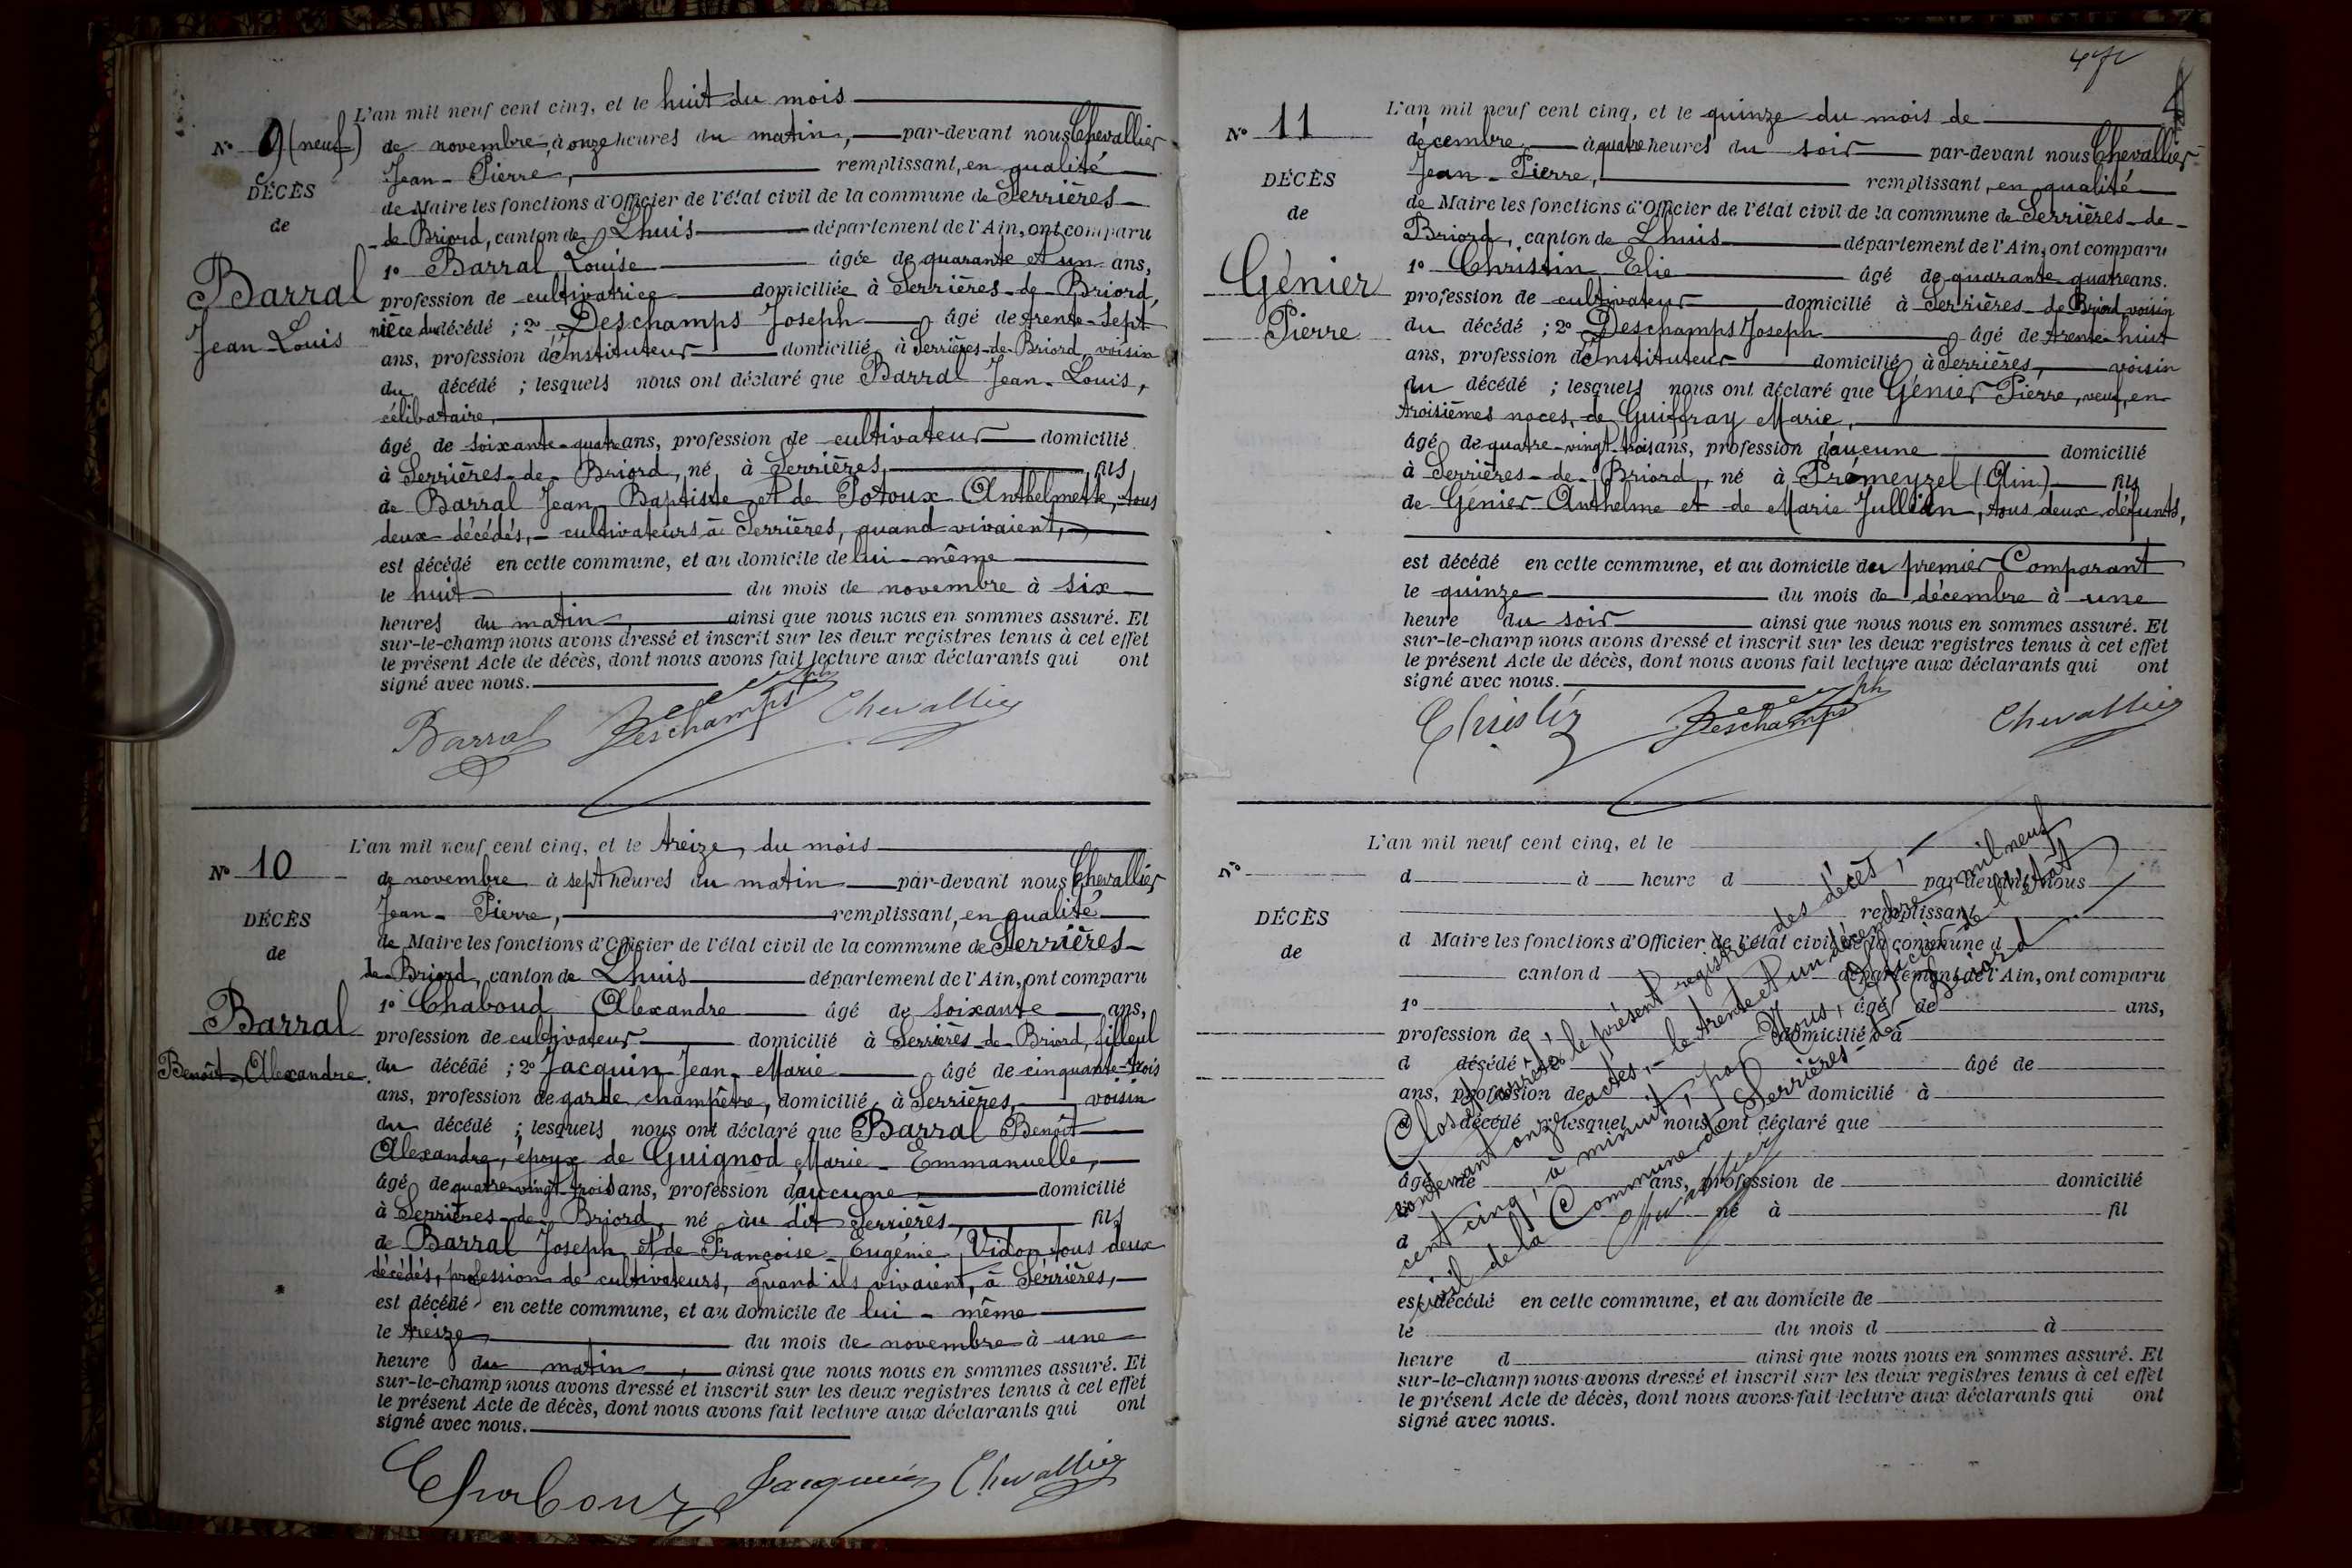 L'an mil neuf cent cinq, et le huit du mois
N° 9 (neuf)
de novembre, à onze heures du matin, par-devant nous Chevallier
Jean-Pierre, remplissant, en qualité
DÉCÈS
de Maire les fonctions d'Officier de l'état civil de la commune de Serrières-
de
de Briord, canton de Lhuis département de l'Ain, ont comparu
1° Barral Louise âgée de quarante et un ans,
Barral
Jean-Louis
profession de cultivatrice domiciliée à Serrières-de-Briord,
nièce du décédé ; 2° Deschamps Joseph âgé de trente-sept
ans, profession d'Instituteur domicilié à Serrières-de-Briord voisin
du décédé ; lesquels nous ont déclaré que Barral Jean-Louis,
célibataire,
âgé de soixante-quatre ans, profession de cultivateur domicilié
à Serrières-de-Briord, né à Serrières, fils
de Barral Jean Baptiste et de Potoux Anthelmette, tous
deux décédés, - cultivateurs à Serrières, quand vivaient,
est décédé en cette commune, et au domicile de lui-même
le huit du mois de novembre à six
heures du matin, ainsi que nous nous en sommes assuré. Et
sur-le-champ nous avons dressé et inscrit sur les deux registres tenus à cet effet
le présent Acte de décès, dont nous avons fait lecture aux déclarants qui ont
signé avec nous.
Barral Deschamps Joseph Chevallier
L'an mil neuf cent cinq, et le treize, du mois
N° 10
de novembre à sept heures du matin par-devant nous Chevallier
Jean-Pierre, remplissant, en qualité
DÉCÈS
de Maire les fonctions d'Officier de l'état civil de la commune de Serrières-
de
de Briord, canton de Lhuis département de l'Ain, ont comparu
1° Chaboud Alexandre âgé de soixante ans,
Barral
Benoît-Alexandre.
profession de cultivateur domicilié à Serrières-de-Briord, filleul
du décédé ; 2° Jacquin Jean-Marie âgé de cinquante-trois
ans, profession de garde champêtre, domicilié à Serrières, voisin
du décédé ; lesquels nous ont déclaré que Barral Benoît
Alexandre, époux de Guignod Marie-Emmanuelle,
âgé de quatre-vingt-trois ans, profession d'aucune domicilié
à Serrières-de-Briord, né au dit Serrières, fils
de Barral Joseph et de Françoise-Eugénie Vidon tous deux
décédés, profession de cultivateurs, quand ils vivaient, à Serrières,
est décédé en cette commune, et au domicile de lui-même
le treize du mois de novembre à une
heure du matin, ainsi que nous nous en sommes assuré. Et
sur-le-champ nous avons dressé et inscrit sur les deux registres tenus à cet effet
le présent Acte de décès, dont nous avons fait lecture aux déclarants qui ont
signé avec nous.
Chaboud Jacquin Chevallier
L'an mil neuf cent cinq, et le quinze du mois de
N° 11
décembre à quatre heures du soir par-devant nous Chevallier
Jean-Pierre, remplissant, en qualité
DÉCÈS
de Maire les fonctions d'Officier de l'état civil de la commune de Serrières-de-
de
Briord, canton de Lhuis département de l'Ain, ont comparu
1° Christin Elie âgé de quarante-quatre ans.
Génier
Pierre
profession de cultivateur domicilié à Serrières-de-Briord voisin
du décédé ; 2° Deschamps Joseph âgé de trente-huit
ans, profession d'Instituteur domicilié à Serrières, voisin
du décédé ; lesquels nous ont déclaré que Génier Pierre, veuf, en
troisièmes noces, de Guiffray Marie,
âgé de quatre-vingt-trois ans, profession d'aucune domicilié
à Serrières-de-Briord, né à Prémeyzel (Ain) fils
de Génier Anthelme et de Marie Jullian, tous deux défunts,
est décédé en cette commune, et au domicile du premier Comparant
le quinze du mois de décembre à une
heure du soir ainsi que nous nous en sommes assuré. Et
sur-le-champ nous avons dressé et inscrit sur les deux registres tenus à cet effet
le présent Acte de décès, dont nous avons fait lecture aux déclarants qui ont
signé avec nous.
Christin Deschamps Joseph Chevallier
L'an mil neuf cent cinq, et le
N°
d à heure d par-devant nous
remplissant
DÉCÈS
d Maire les fonctions d'Officier de l'état civil de la commune d
de
canton d département de l'Ain, ont comparu
1° âgé de ans,
profession de domicilié à
d décédé ; 2° âgé de
ans, profession de domicilié à
d décédé ; lesquel nous ont déclaré que
âgé de ans, profession de domicilié
à né à fil
d
est décédé en cette commune, et au domicile de
le du mois d à
heure d ainsi que nous nous en sommes assuré. Et
sur-le-champ nous avons dressé et inscrit sur les deux registres tenus à cet effet
le présent Acte de décès, dont nous avons fait lecture aux déclarants qui ont
signé avec nous.
Clos et arrêté le présent registre des décès,
contenant onze actes, - le trente et un décembre mil neuf
cent cinq, à minuit, par Nous, Officier de l'état
civil de la Commune de Serrières-de-Briord
Chevallier